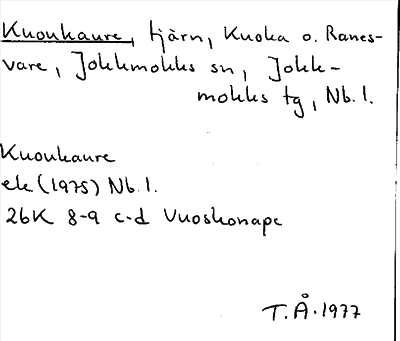 Kuoukaure, tjärn, Kuoka o. Ranes-
vare, Jokkmokks sn, Jokk-
mokks tg, Nb. l.
Kuoukaure
ek (1975) Nb. l.
26K 8-9 c-d Vuoskonape
T.Å. 1977